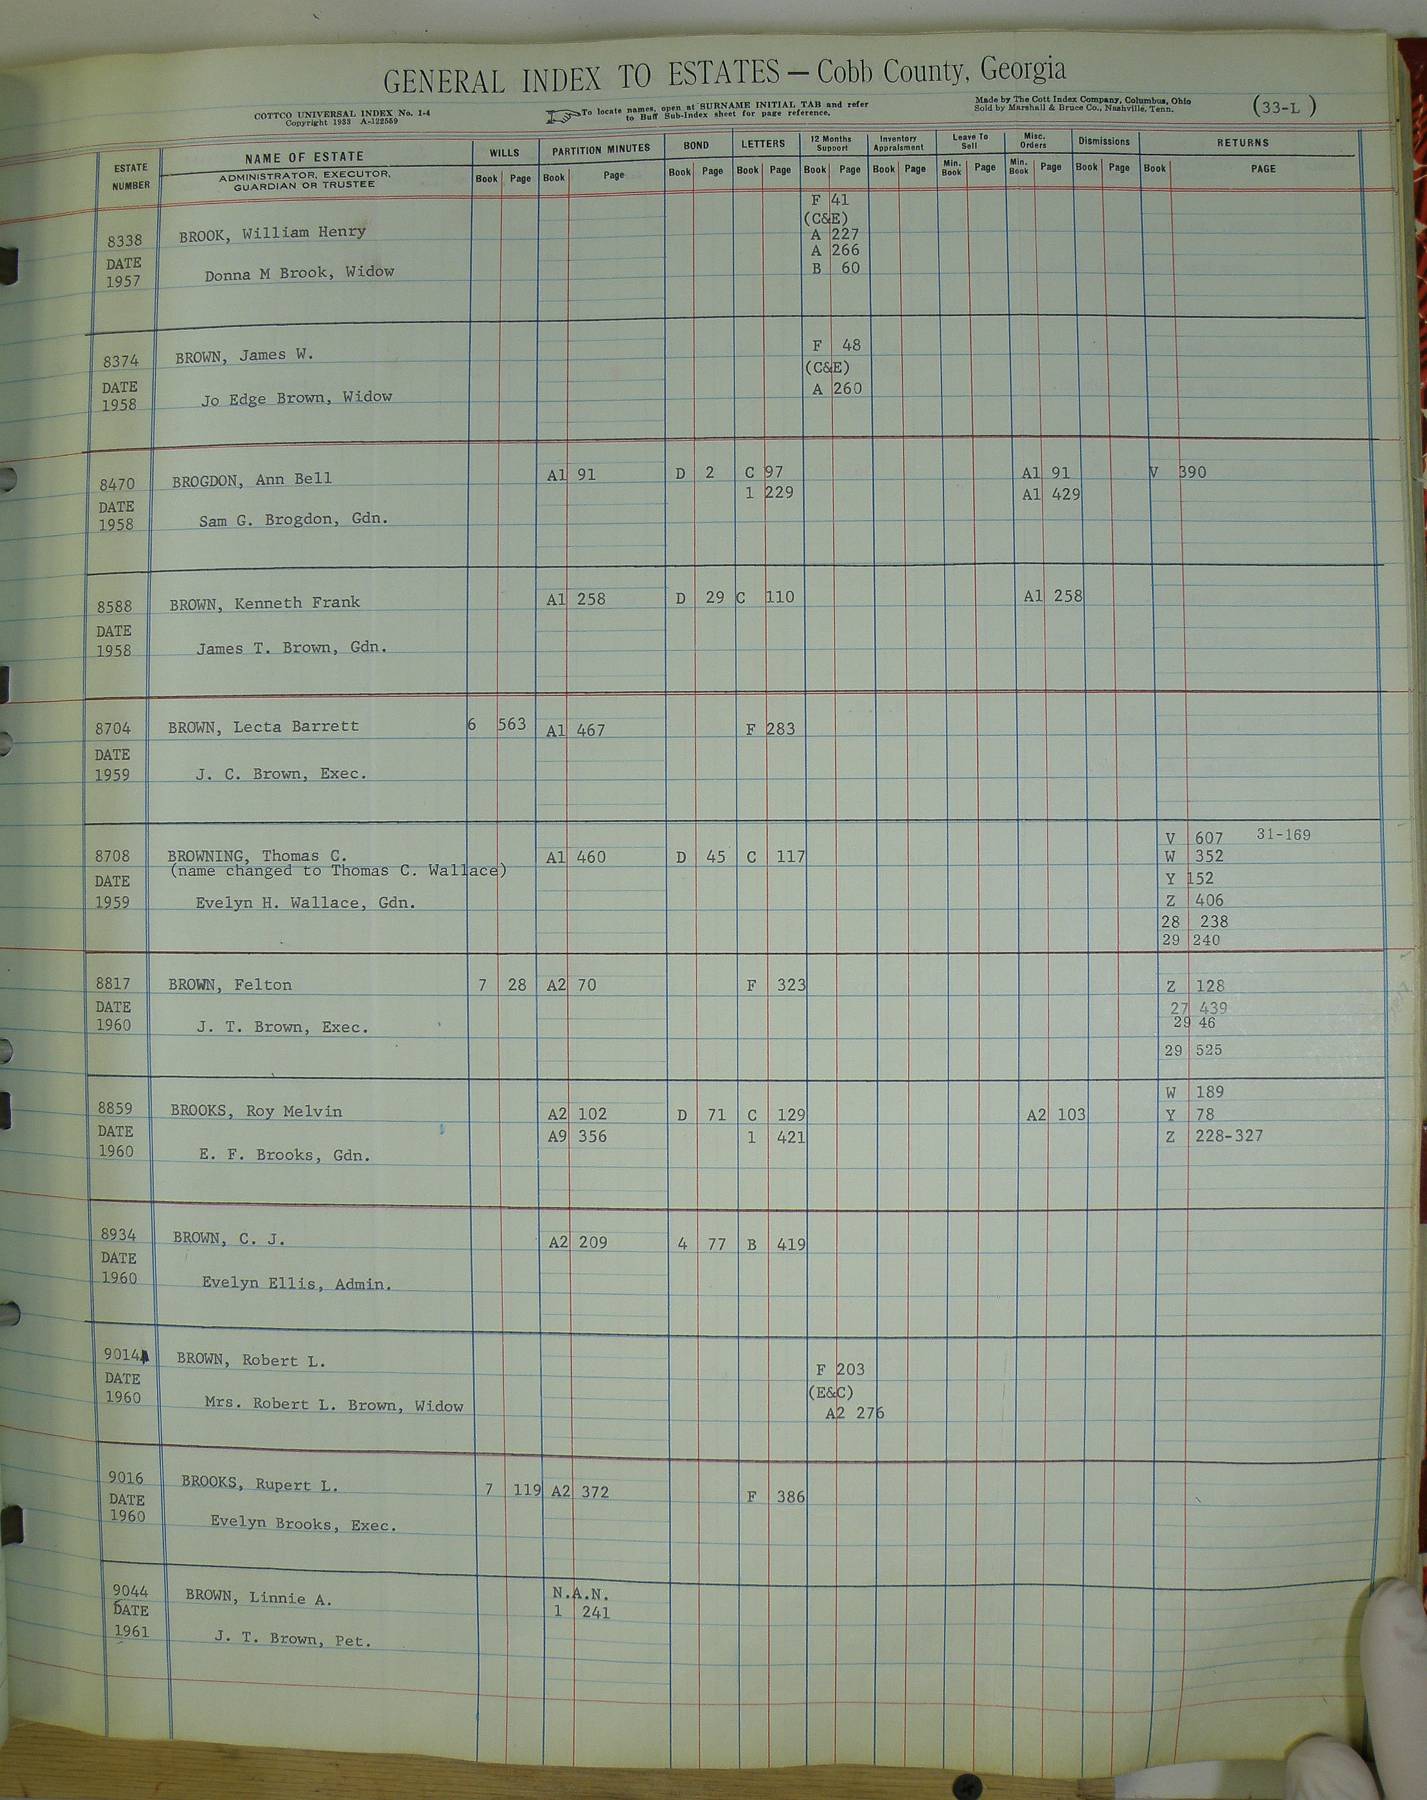 GENERAL INDEX TO ESTATES — Cobb County, Georgia
COTTCO UNIVERSAL INDEX No. 1-4
Copyright 1933 A-122559
To locate names, open at SURNAME INITIAL TAB and refer
to Buff Sub-Index sheet for page reference.
Made by The Cott Index Company, Columbus, Ohio
Sold by Marshall & Bruce Co., Nashville, Tenn.
(33-L )
ESTATE NUMBER NAME OF ESTATE WILLS PARTITION MINUTES BOND LETTERS 12 Months Support Inventory Appraisment Leave To Sell Misc. Orders Dismissions RETURNS
ADMINISTRATOR, EXECUTOR, GUARDIAN OR TRUSTEE Book Page Book Page Book Page Book Page Book Page Book Page Min. Book Page Min. Book Page Book Page Book PAGE
F 41
(C&E)
8338 BROOK, William Henry A 227
A 266
DATE Donna M Brook, Widow B 60
1957
8374 BROWN, James W. F 48
(C&E)
DATE A 260
1958 Jo Edge Brown, Widow
8470 BROGDON, Ann Bell A1 91 D 2 C 97 A1 91 V 390
1 229 A1 429
DATE
1958 Sam G. Brogdon, Gdn.
8588 BROWN, Kenneth Frank A1 258 D 29 C 110 A1 258
DATE
1958 James T. Brown, Gdn.
8704 BROWN, Lecta Barrett 6 563 A1 467 F 283
DATE
1959 J. C. Brown, Exec.
V 607 31-169
8708 BROWNING, Thomas C. A1 460 D 45 C 117 W 352
(name changed to Thomas C. Wallace)
DATE Y 152
1959 Evelyn H. Wallace, Gdn. Z 406
28 238
29 240
8817 BROWN, Felton 7 28 A2 70 F 323 Z 128
DATE 27 439
1960 J. T. Brown, Exec. 29 46
29 525
W 189
8859 BROOKS, Roy Melvin A2 102 D 71 C 129 A2 103 Y 78
DATE A9 356 1 421 Z 228-327
1960 E. F. Brooks, Gdn.
8934 BROWN, C. J. A2 209 4 77 B 419
DATE
1960 Evelyn Ellis, Admin.
9014A BROWN, Robert L. F 203
DATE (E&C)
1960 Mrs. Robert L. Brown, Widow A2 276
9016 BROOKS, Rupert L. 7 119 A2 372 F 386
DATE
1960 Evelyn Brooks, Exec.
9044 BROWN, Linnie A. N.A.N.
DATE 1 241
1961 J. T. Brown, Pet.